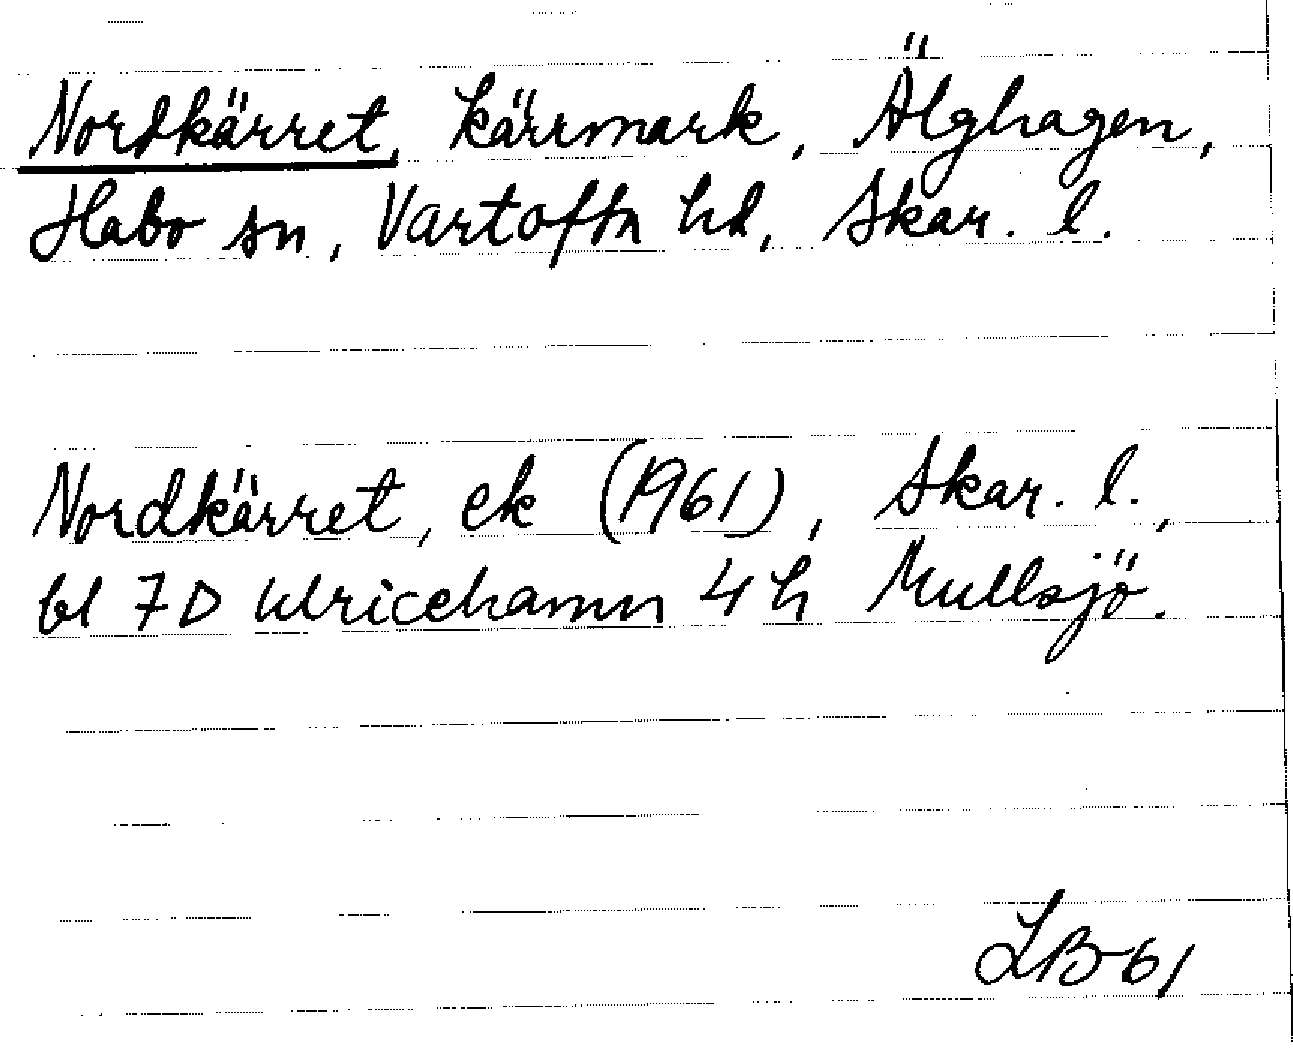 Nordkärret, kärrmark, Älghagen,
Habo sn, Vartofta hd, Skar. l.
Nordkärret, ek (1961), Skar. l.,
bl 7D Ulricehamn 4h Mullsjö.
LB 61